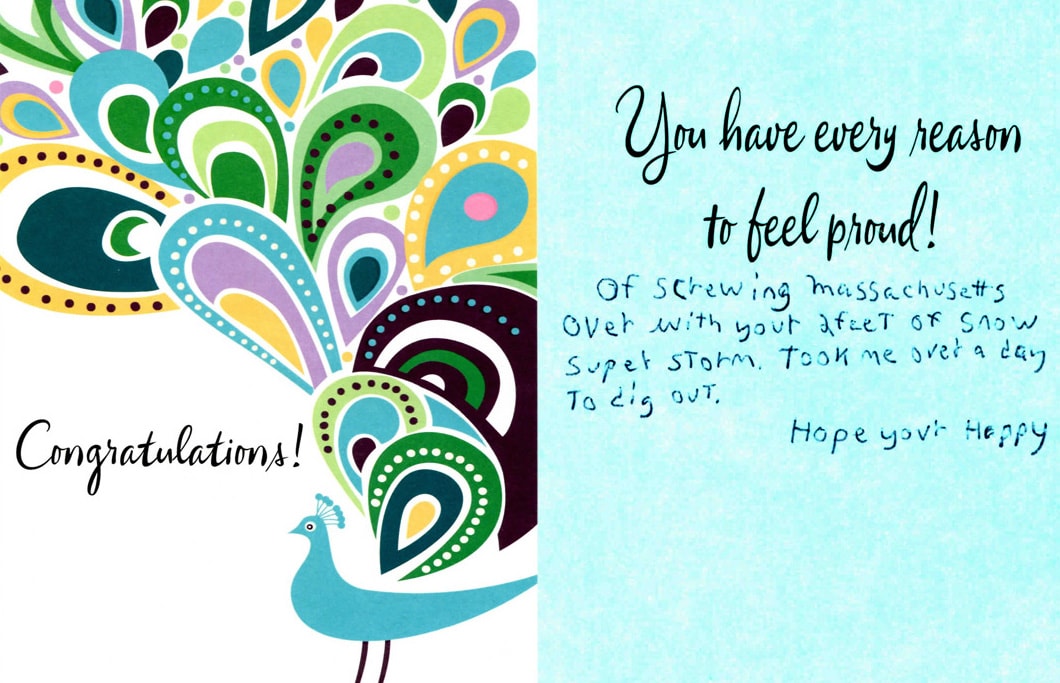 Congratulations!
You have every reason
to feel proud!
Of screwing massachusetts
over with your 2feet of snow
super storm. Took me over a day
To dig out.
Hope your Happy